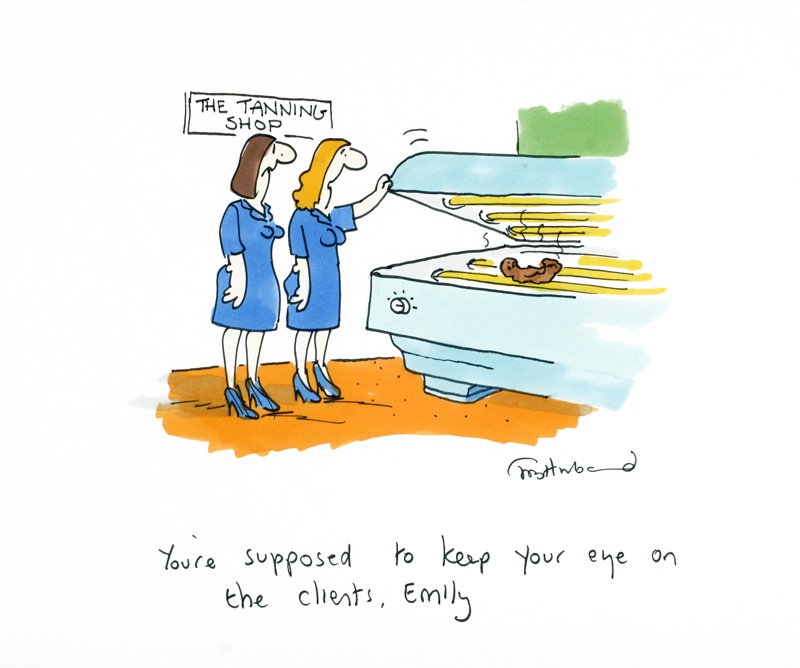 THE TANNING
SHOP
You're supposed to keep your eye on
the clients, Emily